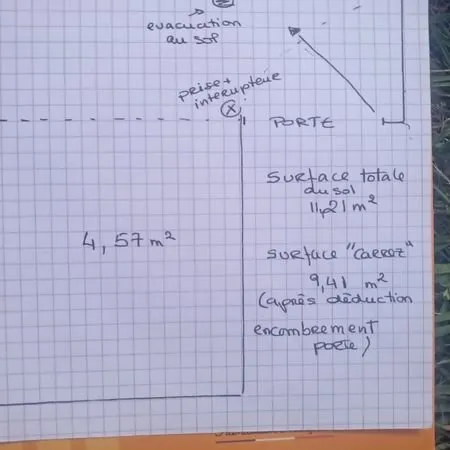 evacuation
au sol
prise +
interrupteur
PORTE
surface totale
du sol
11,21 m²
4,57 m²
surface "Carrez"
9,41 m²
(après déduction
encombrement
porte)